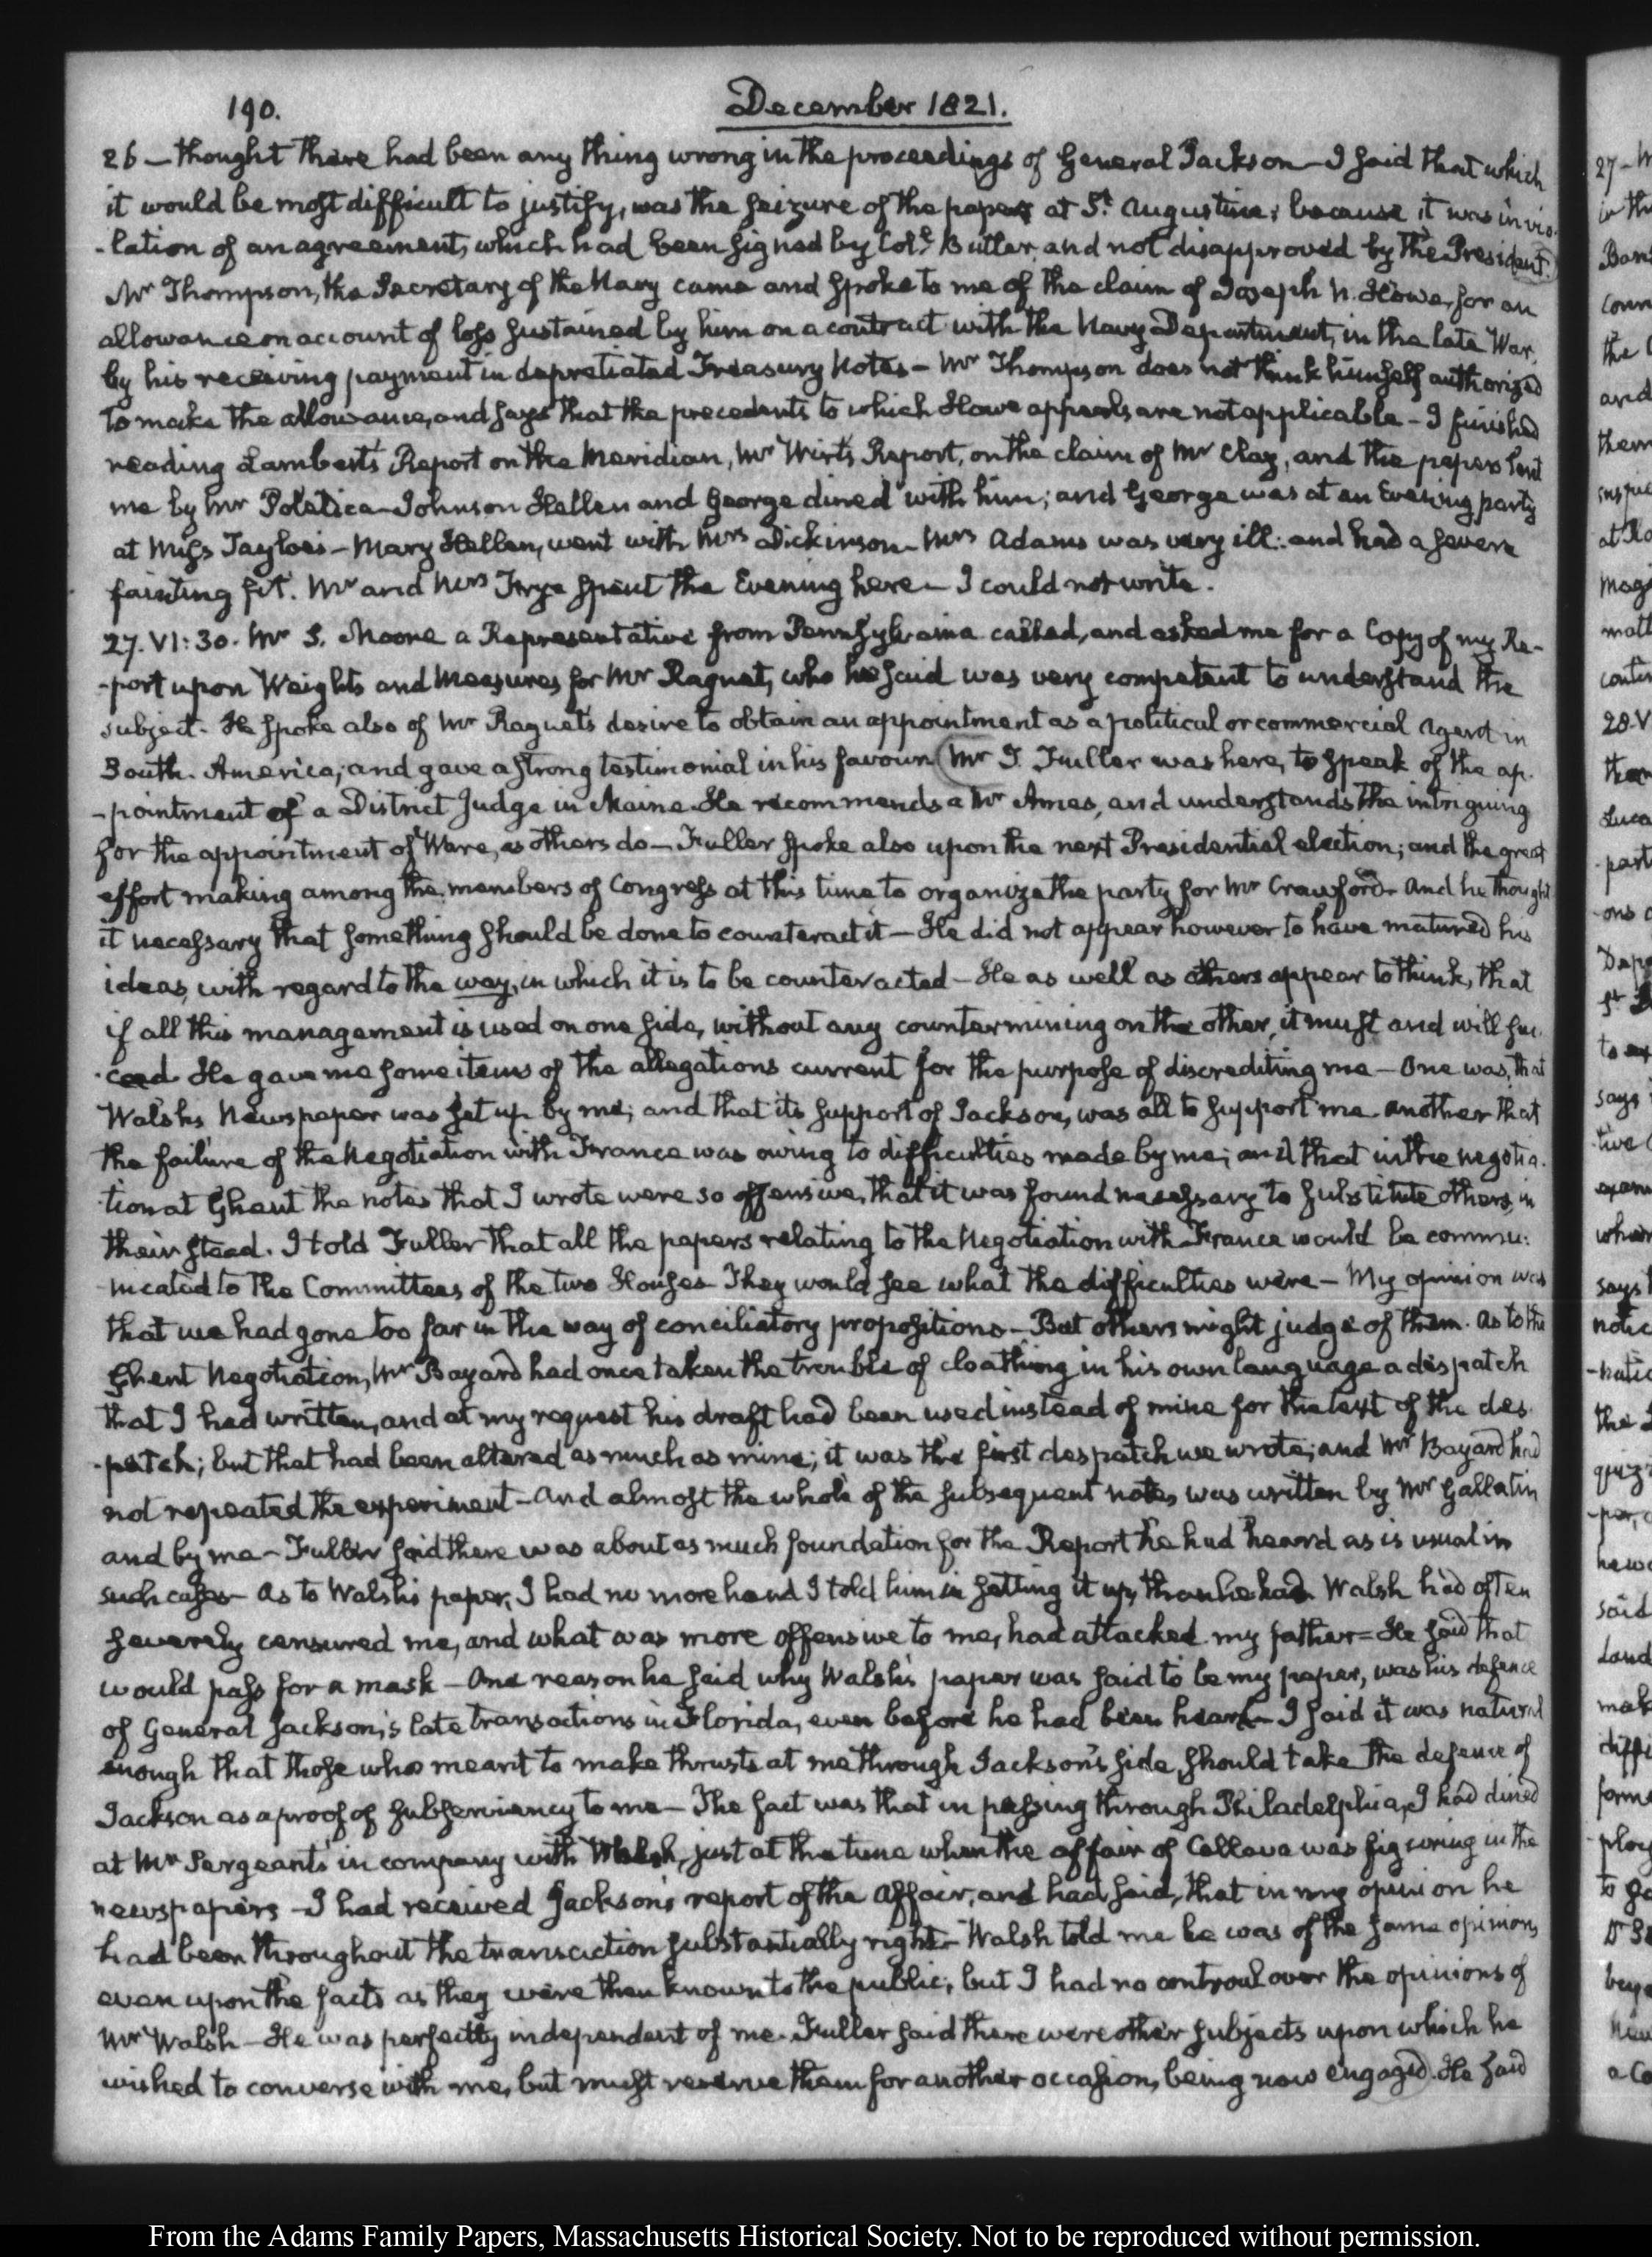 190.
December 1821.
26 — thought there had been any thing wrong in the proceedings of General Jackson — I said that which
it would be most difficult to justify, was the seizure of the papers at St. Augustine; because it was in vio-
-lation of an agreement, which had been signed by Coll. Butler, and not disapproved by the President.
Mr Thompson, the Secretary of the Navy came and spoke to me of the claim of Joseph N. Howe, for an
allowance on account of loss sustained by him on a contract with the Navy Department, in the late War,
by his receiving payment in depretiated Treasury Notes — Mr Thompson does not think himself authorized
to make the allowance, and says that the precedents to which Howe appeals are not applicable — I finished
reading Lambert's Report on the Meridian, Mr Wirt's Report, on the claim of Mr Clay, and the papers sent
me by Mr Poletica — Johnson Hellen and George dined with him; and George was at an Evening party
at Miss Tayloe's — Mary Hellen, went with Mrs Dickinson — Mrs Adams was very ill: and had a severe
fainting fit. Mr and Mrs Frye spent the Evening here — I could not write.
27. VI:30. Mr S. Moore a Representative from Pennsylvania called, and asked me for a Copy of my Re-
-port upon Weights and Measures for Mr Raguet, who he said was very competent to understand the
subject. He spoke also of Mr Raguet's desire to obtain an appointment as a political or commercial Agent in
South-America; and gave a strong testimonial in his favour (Mr T. Fuller was here, to speak of the ap-
-pointment of a District Judge in Maine. He recommends a Mr Ames, and understands the intriguing
for the appointment of Ware, as others do — Fuller spoke also upon the next Presidential election; and the great
effort making among the members of Congress at this time to organize the party for Mr Crawford — And he thought
it necessary that something should be done to counteract it — He did not appear however to have matured his
ideas with regard to the way, in which it is to be counteracted — He as well as others appear to think, that
if all this management is used on one side, without any countermining on the other, it must and will suc-
-ceed. He gave me some items of the allegations current for the purpose of discrediting me — One was, that
Walsh's Newspaper was set up by me; and that its support of Jackson, was all to support me — another that
the failure of the Negotiation with France was owing to difficulties made by me; and that in the negotia-
-tion at Ghent the notes that I wrote were so offensive, that it was found necessary to substitute others, in
their stead. I told Fuller that all the papers relating to the Negotiation with France would be commu-
-nicated to the Committees of the two Houses — They would see what the difficulties were — My opinion was
that we had gone too far in the way of conciliatory propositions — But others might judge of them. As to the
Ghent Negotiation, Mr Bayard had once taken the trouble of cloathing in his own language a despatch
that I had written, and at my request his draft had been used instead of mine for the text of the des-
-patch; but that had been altered as much as mine; it was the first despatch we wrote; and Mr Bayard had
not repeated the experiment — And almost the whole of the subsequent notes, was written by Mr Gallatin
and by me — Fuller said there was about as much foundation for the Report he had heard as is usual in
such cases — As to Walsh's paper, I had no more hand I told him in setting it up, than he had. Walsh had often
severely censured me, and what was more offensive to me, had attacked my father = He said that
would pass for a mask — One reason he said why Walsh's paper was said to be my paper, was his defence
of General Jackson's late transactions in Florida, even before he had been heard — I said it was natural
enough that those who meant to make thrusts at me through Jackson's side, should take the defence of
Jackson as a proof of subserviency to me — The fact was that in passing through Philadelphia, I had dined
at Mr Sergeant's in company with Walsh, just at the time when the affair of Callava was figuring in the
newspapers — I had received Jackson's report of the Affair, and had said, that in my opinion he
had been throughout the transaction substantially right — Walsh told me he was of the same opinion,
even upon the facts as they were then known to the public; but I had no controul over the opinions of
Mr Walsh — He was perfectly independent of me. Fuller said there were other subjects upon which he
wished to converse with me, but must reserve them for another occasion, being now engaged). He said
From the Adams Family Papers, Massachusetts Historical Society. Not to be reproduced without permission.